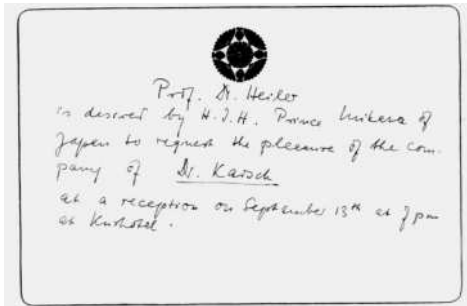 Prof. Dr. Heiler
is desired by H.I.H. Prince Mikasa of
Japan to request the pleasure of the com-
pany of Dr. Karsch
at a reception on September 13th at 7 pm
at Kurhotel.